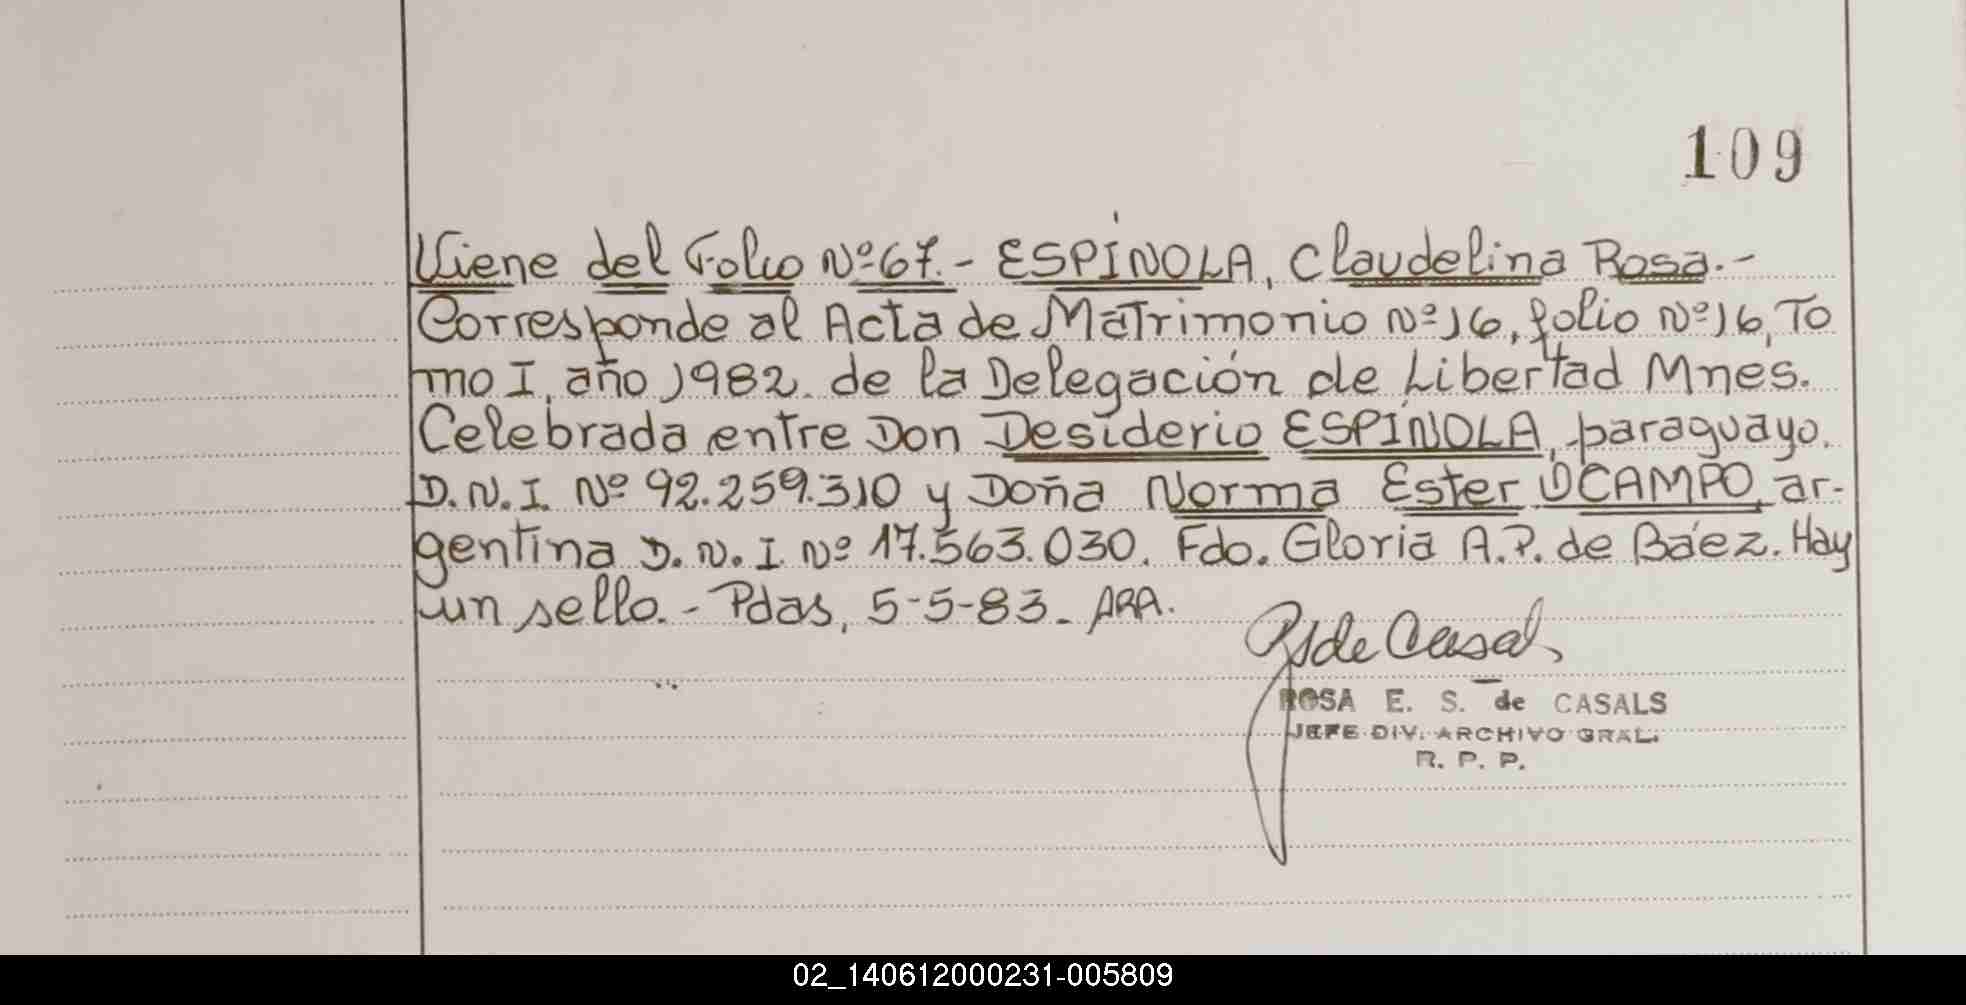 109
Viene del Folio Nº 67.- ESPÍNOLA, Claudelina Rosa.-
Corresponde al Acta de Matrimonio Nº 16, folio Nº 16, To
mo I, año 1982. de la Delegación de Libertad Mnes.
Celebrada entre Don Desiderio ESPÍNOLA, paraguayo.
D.N.I. Nº 92.259.310 y Doña Norma Ester OCAMPO, ar-
gentina D.N.I. Nº 17.563.030. Fdo. Gloria A.P. de Báez. Hay
un sello.- Pdas, 5-5-83. ARA.
de Casals
ROSA E. S. de CASALS
JEFE DIV. ARCHIVO GRAL.
R. P. P.
02_140612000231-005809